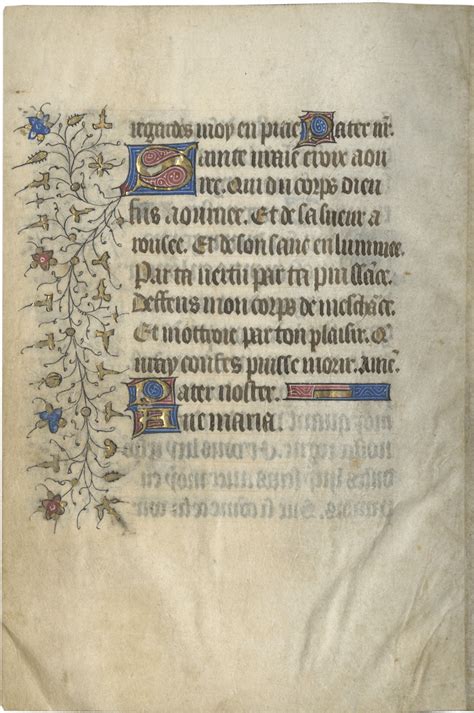 regardes moy en pitie Pater nr̄.
Sainte vraie croix aou
ree. Qui du corps dieu
fus aournee. Et de sa sueur a
rousee. Et de son sanc enluminee.
Par ta vertu par ta puissāce.
Deffens mon corps de meschāce.
Et mottroie par ton plaisir. Q̄
vray confes puisse morir. Amē.
Pater noster.
Aue maria.